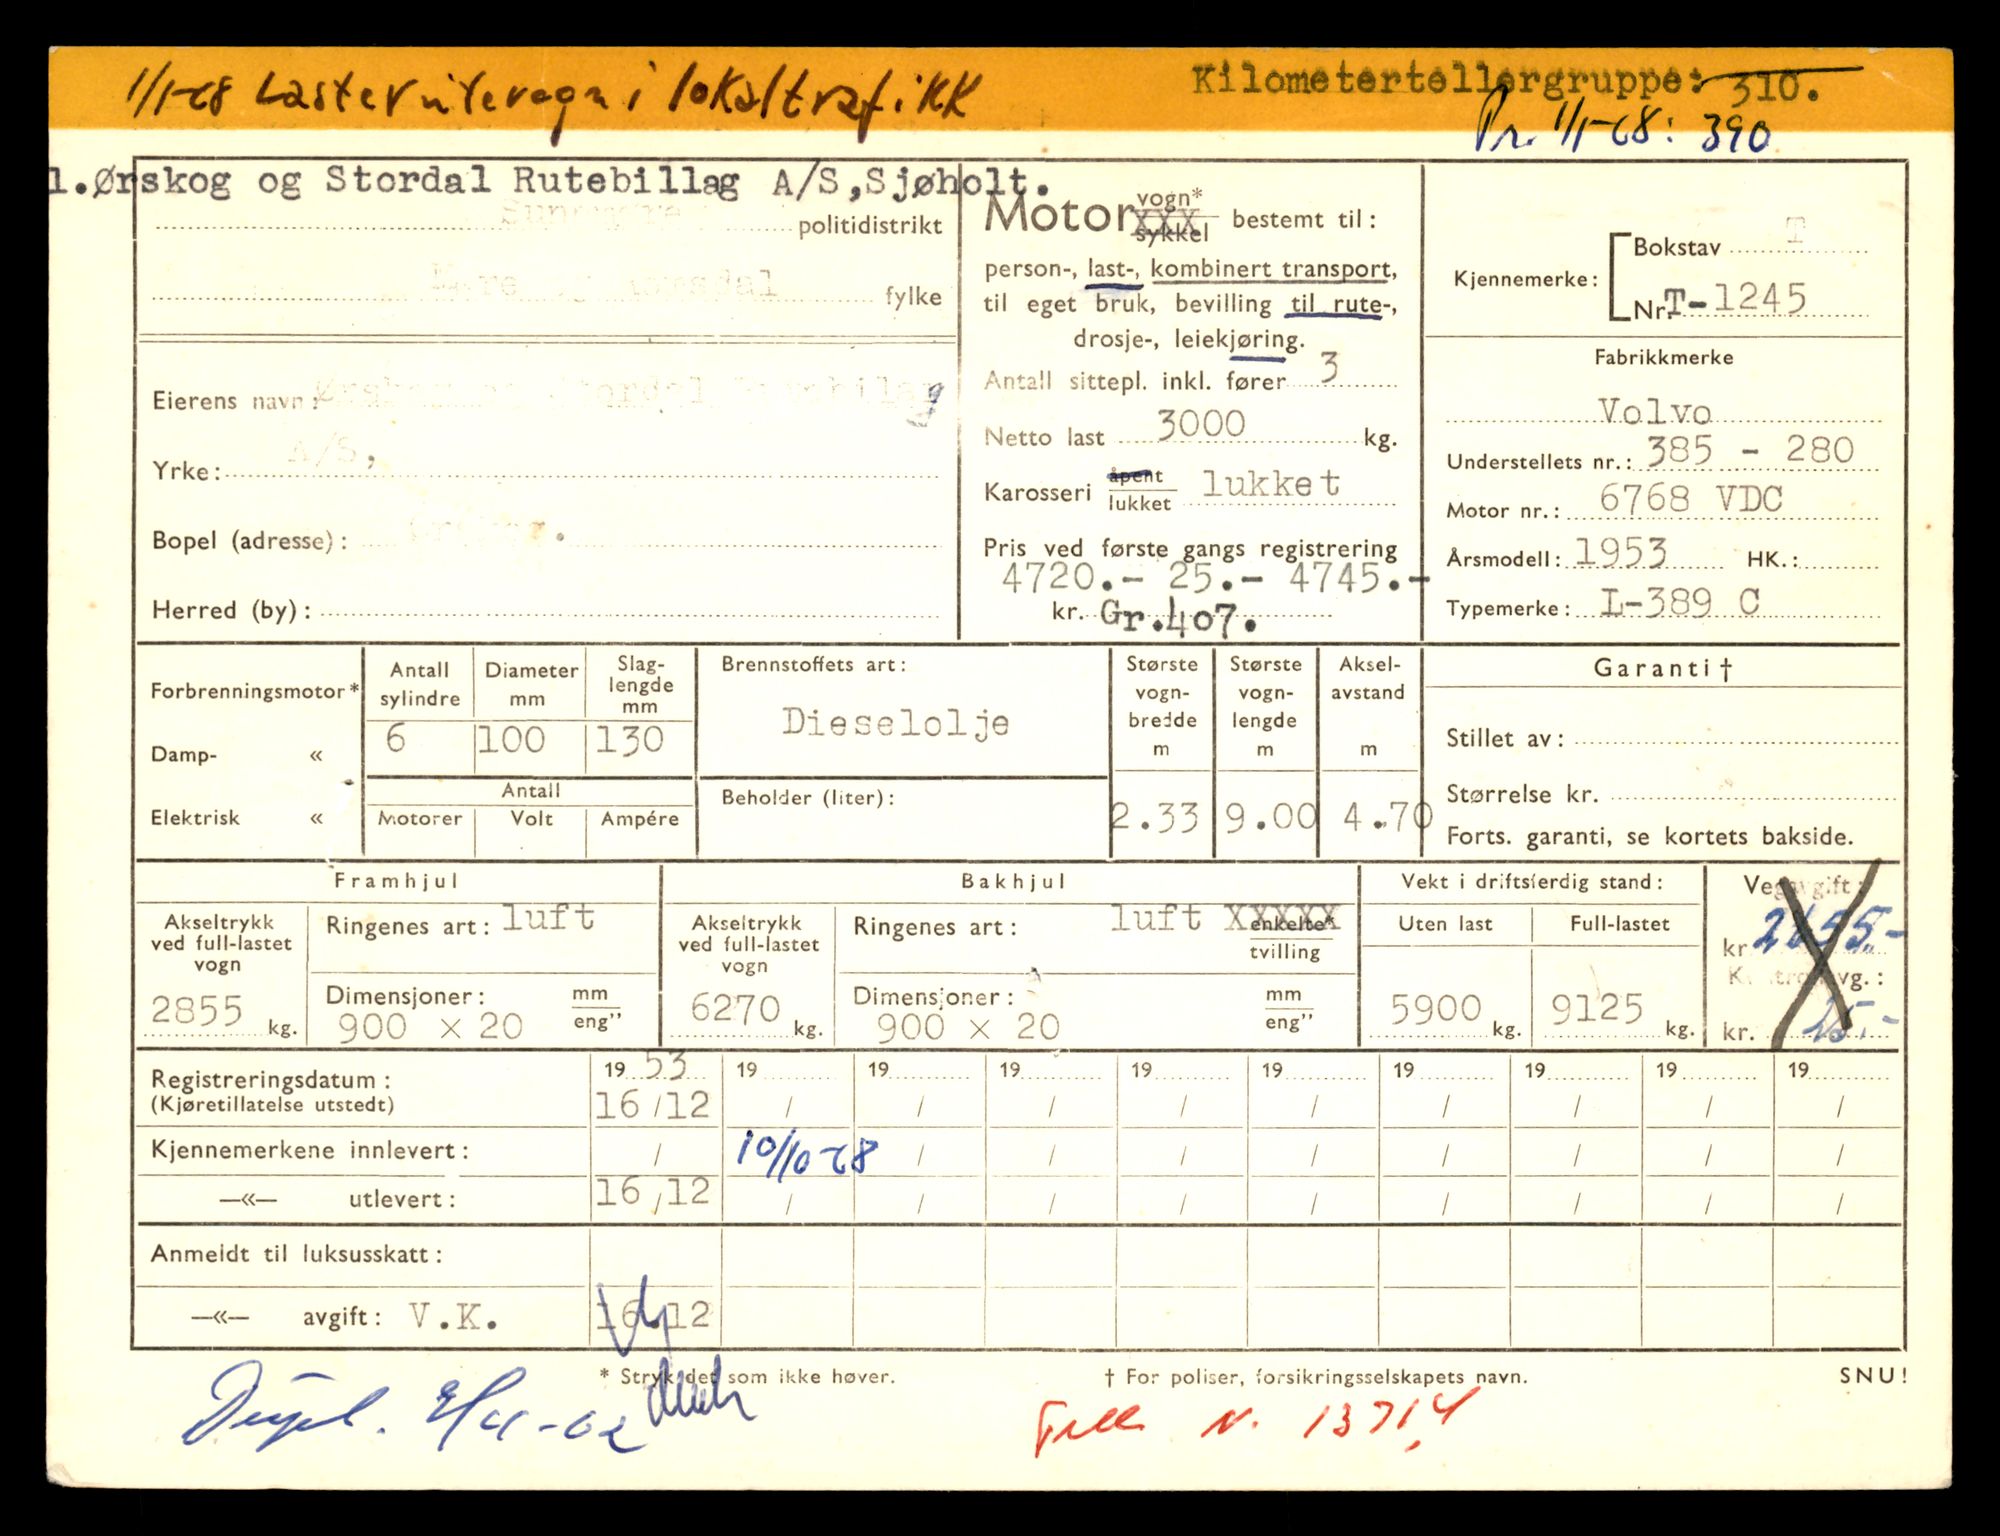 1/1-68 Lasterutevogn i lokaltrafikk
Kilometertellergruppe: 310.
Pr. 1/1-68: 390
1.Ørskog og Stordal Rutebillag A/S,Sjøholt.
Sunnmøre politidistrikt
Møre og Romsdal fylke
Eierens navn: Ørskog og Stordal Rutebilag
A/S,
Yrke:
Bopel (adresse): Ørskog.
Herred (by):
Motor vogn* XXX sykkel bestemt til:
person-, last-, kombinert transport,
til eget bruk, bevilling til rute-,
drosje-, leiekjøring.
Antall sittepl. inkl. fører 3
Netto last 3000 kg.
Karosseri åpent lukket lukket
Pris ved første gangs registrering
4720.- 25.- 4745.-
kr. Gr.407.
Kjennemerke: Bokstav T
Nr. T-1245
Fabrikkmerke
Volvo
Understellets nr.: 385 - 280
Motor nr.: 6768 VDC
Årsmodell: 1953 HK.:
Typemerke: L-389 C
Forbrenningsmotor*
Damp- «
Elektrisk «
Antall sylindre 6
Diameter mm 100
Slag-lengde mm 130
Antall
Motorer Volt Ampére
Brennstoffets art:
Dieselolje
Beholder (liter):
Største vogn-bredde m 2.33
Største vogn-lengde m 9.00
Aksel-avstand m 4.70
Garanti †
Stillet av:
Størrelse kr.
Forts. garanti, se kortets bakside.
Framhjul
Akseltrykk ved full-lastet vogn 2855 kg.
Ringenes art: luft
Dimensjoner: 900 x 20 mm eng"
Bakhjul
Akseltrykk ved full-lastet vogn 6270 kg.
Ringenes art: luft XXXXX enkelte* tvilling
Dimensjoner: 900 x 20 mm eng"
Vekt i driftsferdig stand:
Uten last 5900 kg.
Full-lastet 9125 kg.
Vegavgift:
kr 2655.-
Kontrollavg.:
kr. 25.-
Registreringsdatum: 19 53 19 19 19 19 19 19 19 19 19
(Kjøretillatelse utstedt) 16/12 / / / / / / / / /
Kjennemerkene innlevert: / 10/10-68 / / / / / / / /
—«— utlevert: 16/12 / / / / / / / / /
Anmeldt til luksusskatt:
—«— avgift: V.K. 16.12
* Stryk det som ikke høver.
† For poliser, forsikringsselskapets navn.
SNU!
N. 13714